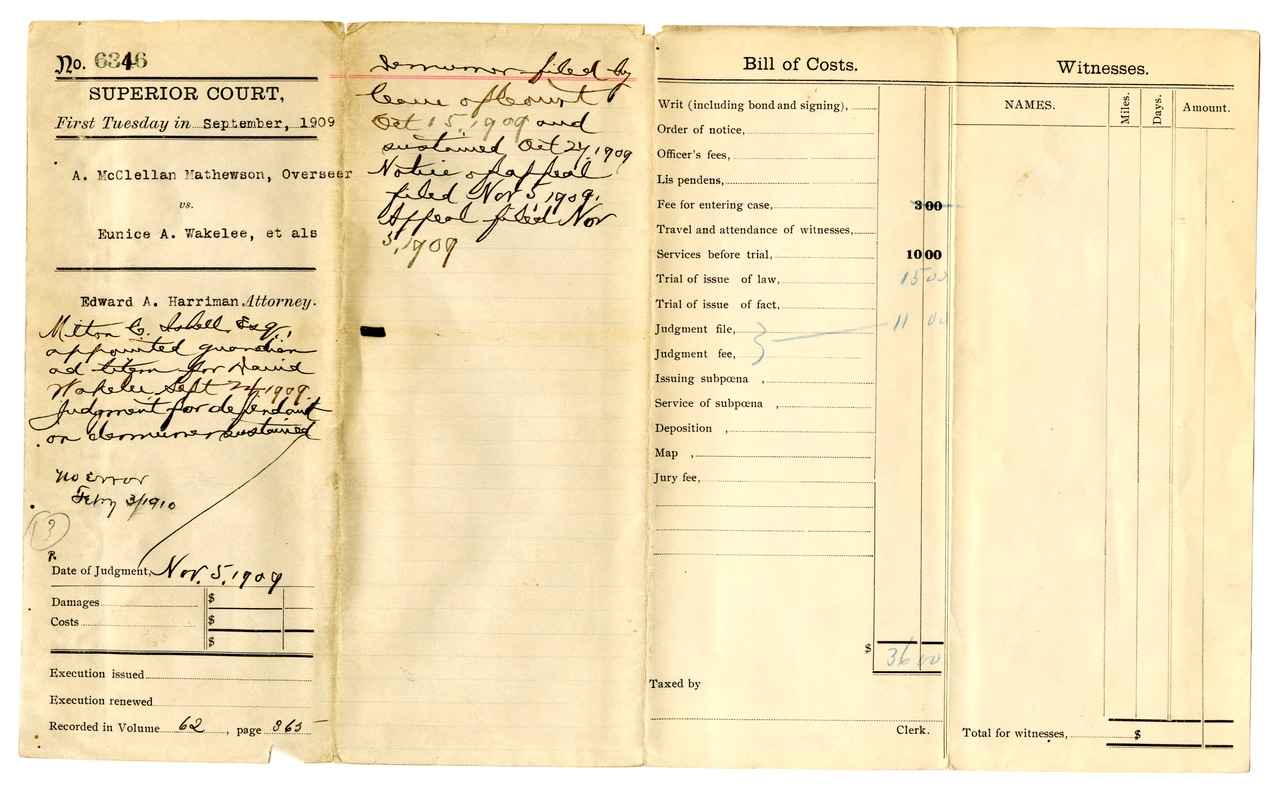 No. 6346
SUPERIOR COURT,
First Tuesday in September, 1909
A. McClellan Mathewson, Overseer
vs.
Eunice A. Wakelee, et als
Edward A. Harriman Attorney.
Milton C. Isbell, Esq.,
appointed guardian
ad litem for David
Wakelee Sept 24, 1909.
Judgment for defendant
on demurrer sustained
No Error
Feby 3/1910
(3)
P.
Date of Judgment, Nov. 5, 1909
Damages $
Costs $
$
Execution issued
Execution renewed
Recorded in Volume 62, page 365
Demurrer filed by
leave of Court
Oct 15, 1909 and
sustained Oct 27, 1909
Notice of appeal
filed Nov 5, 1909.
Appeal filed Nov
5, 1909
Bill of Costs.
Writ (including bond and signing),
Order of notice,
Officer's fees,
Lis pendens,
Fee for entering case, 3 00
Travel and attendance of witnesses,
Services before trial, 10 00
Trial of issue of law, 15 00
Trial of issue of fact,
Judgment file, } 11 00
Judgment fee,
Issuing subpœna ,
Service of subpœna ,
Deposition ,
Map ,
Jury fee,
$ 36 00
Taxed by
Clerk.
Witnesses.
NAMES. Miles. Days. Amount.
Total for witnesses, $